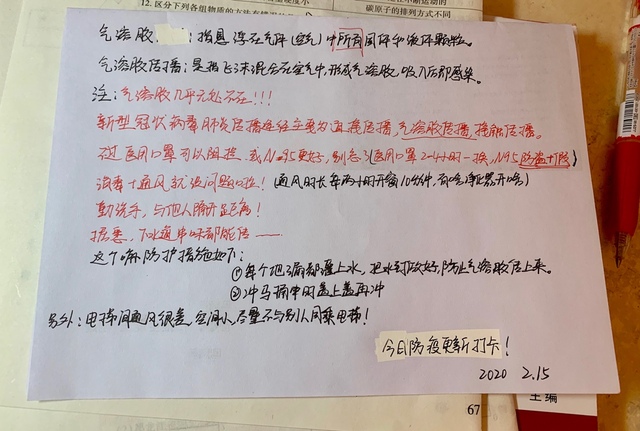 12. 区分下列各组物质的方法
碳原子的排列方式不同
气溶胶 : 指悬浮在气体(空气)中所有固体和液体颗粒。
气溶胶传播:是指飞沫混合在空气中,形成气溶胶,吸入后即感染。
注:气溶胶几乎无处不在!!!
新型冠状病毒肺炎传播途径主要为直接传播,气溶胶传播,接触传播。
不过医用口罩可以阻挡.或N95更好,别忘了(医用口罩2-4小时一换,N95
消毒+通风就没问题啦!(通风时长每两小时开窗10分钟,
勤洗手,与他人隔开距离!
据悉,下水道串味都能传——
这个嘛防护措施如下:
①每个地漏都灌上水,把水封做好,防止气溶胶传上来。
②冲马桶时盖上盖再冲
另外:电梯间通风很差,空间小,尽量不与别人同乘电梯!
今日防疫更新打卡!
2020 2.15
67
主编